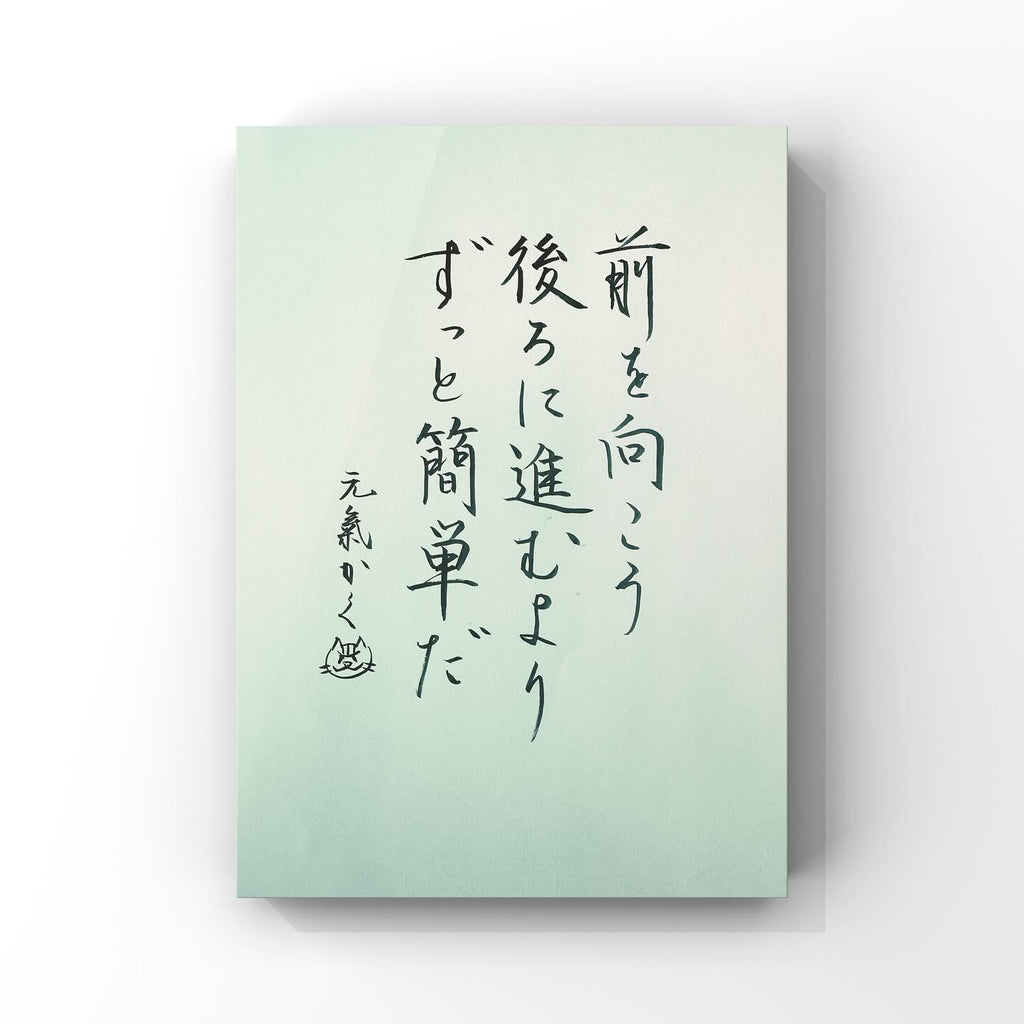 前を向こう
後ろに進むより
ずっと簡単だ
元氣かく